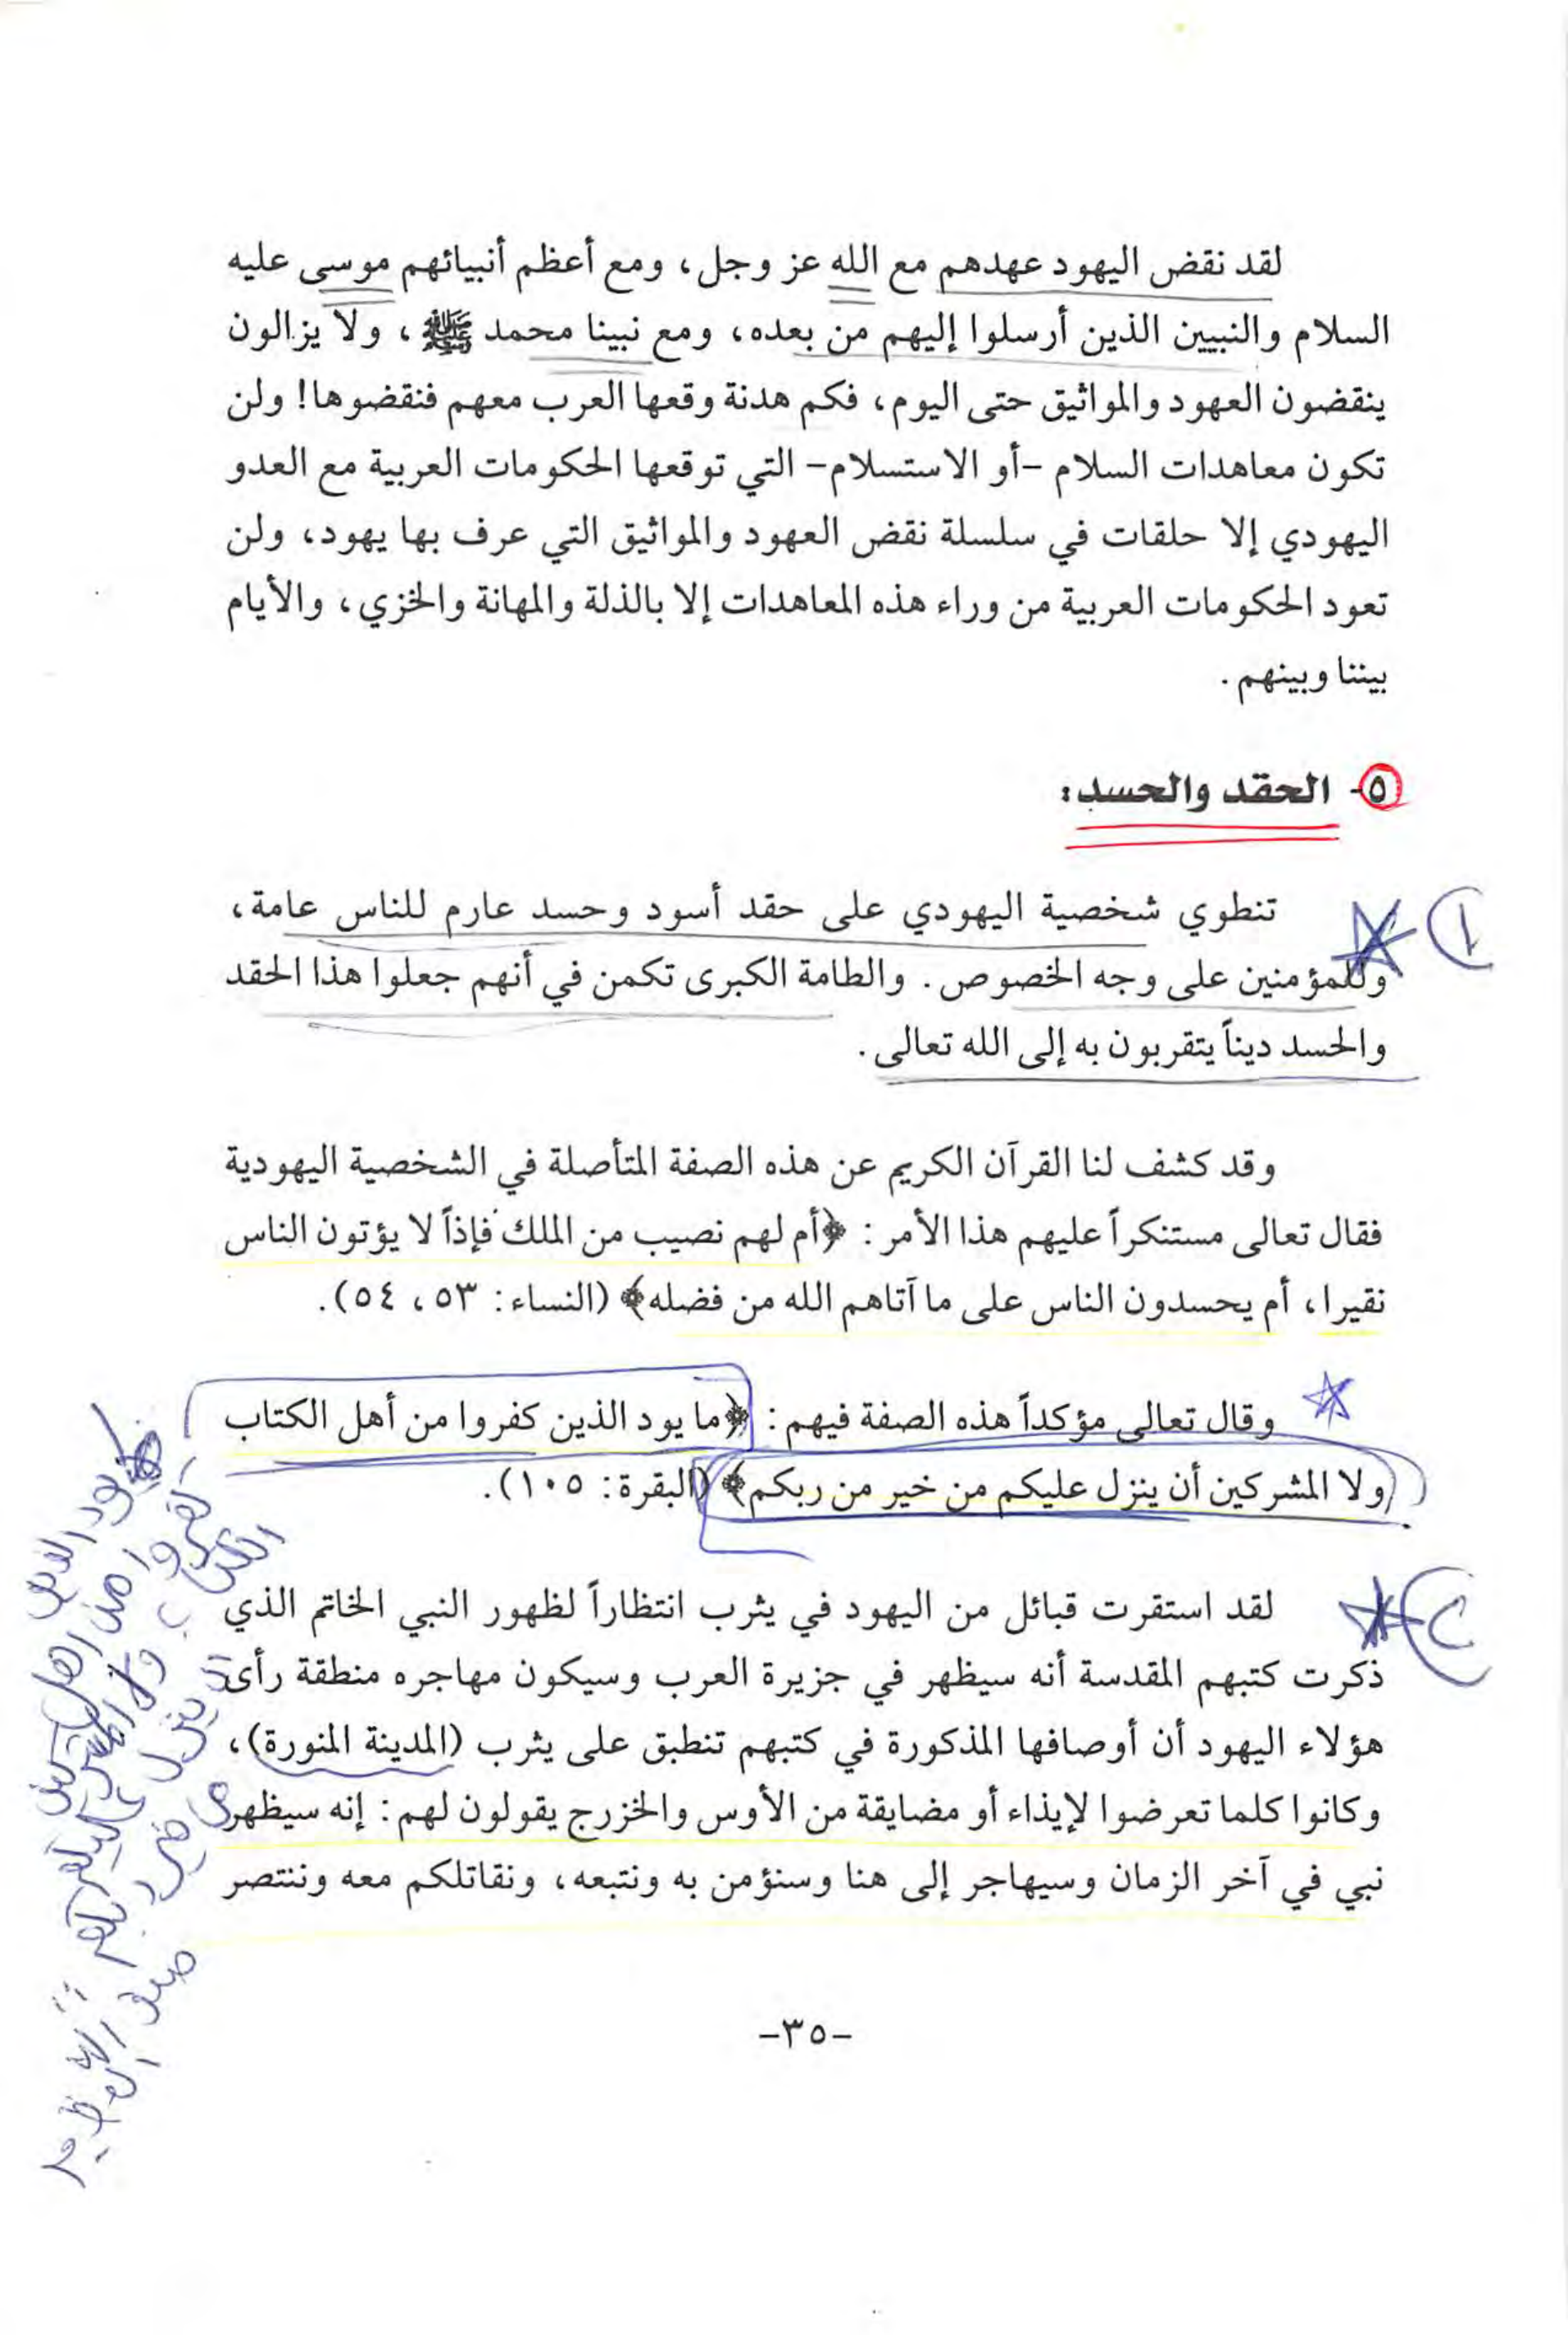 لقد نقض اليهود عهدهم مع الله عز وجل، ومع أعظم أنبيائهم موسى عليه
السلام والنبيين الذين أرسلوا إليهم من بعده، ومع نبينا محمد ﷺ، ولا يزالون
ينقضون العهود والمواثيق حتى اليوم، فكم هدنة وقعها العرب معهم فنقضوها! ولن
تكون معاهدات السلام -أو الاستسلام- التي توقعها الحكومات العربية مع العدو
اليهودي إلا حلقات في سلسلة نقض العهود والمواثيق التي عرف بها يهود، ولن
تعود الحكومات العربية من وراء هذه المعاهدات إلا بالذلة والمهانة والخزي، والأيام
بيننا وبينهم.
٥- الحقد والحسد:
١
تنطوي شخصية اليهودي على حقد أسود وحسد عارم للناس عامة،
وللمؤمنين على وجه الخصوص. والطامة الكبرى تكمن في أنهم جعلوا هذا الحقد
والحسد ديناً يتقربون به إلى الله تعالى.
وقد كشف لنا القرآن الكريم عن هذه الصفة المتأصلة في الشخصية اليهودية
فقال تعالى مستنكراً عليهم هذا الأمر: ﴿أم لهم نصيب من الملك فإذاً لا يؤتون الناس
نقيرا، أم يحسدون الناس على ما آتاهم الله من فضله﴾ (النساء: ٥٣، ٥٤).
وقال تعالى مؤكداً هذه الصفة فيهم: ﴿ما يود الذين كفروا من أهل الكتاب
ولا المشركين أن ينزل عليكم من خير من ربكم﴾ (البقرة: ١٠٥).
٢
لقد استقرت قبائل من اليهود في يثرب انتظاراً لظهور النبي الخاتم الذي
ذكرت كتبهم المقدسة أنه سيظهر في جزيرة العرب وسيكون مهاجره منطقة رأى
هؤلاء اليهود أن أوصافها المذكورة في كتبهم تنطبق على يثرب (المدينة المنورة)،
وكانوا كلما تعرضوا لإيذاء أو مضايقة من الأوس والخزرج يقولون لهم: إنه سيظهر
نبي في آخر الزمان وسيهاجر إلى هنا وسنؤمن به ونتبعه، ونقاتلكم معه وننتصر
-٣٥-
يود الذين
كفروا من أهل
الكتاب ولا المشركين
أن ينزل عليكم
من خير من ربكم
صدق الله العظيم